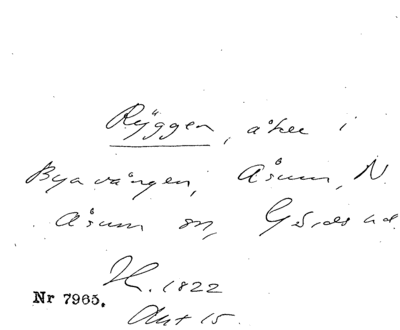 Ryggen, åker i
Byavången, Åsum, N.
Åsum sn, Gärds hd.
H. 1822
Akt 15.
Nr 7965.